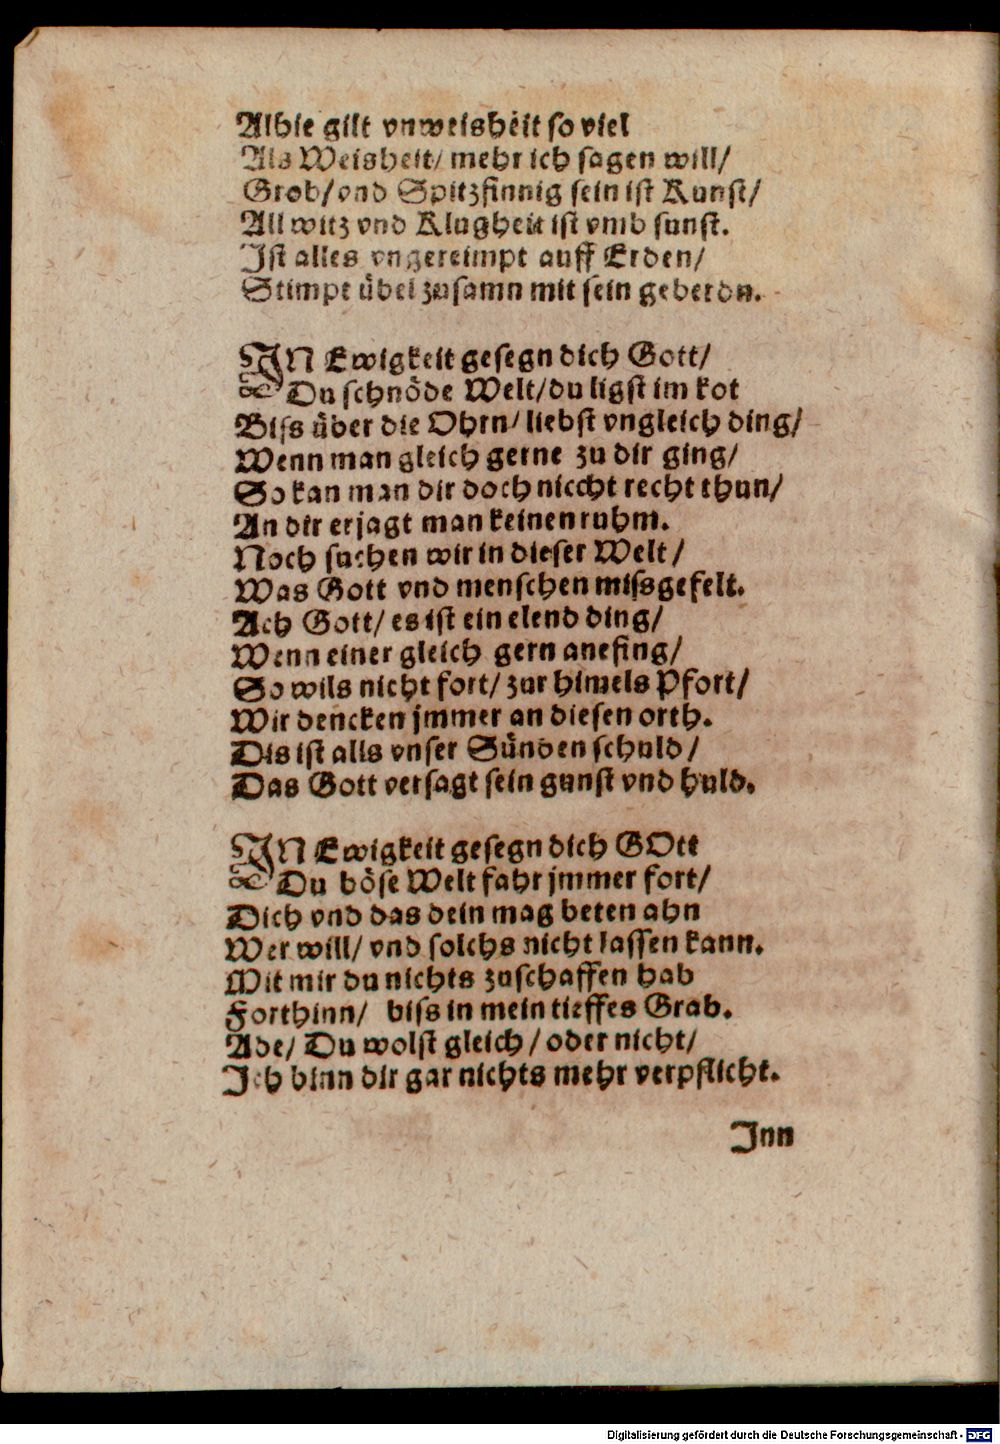 Alhie gilt vnweisheit so viel
Als Weisheit/ mehr ich sagen will/
Grob/vnd Spitzfinnig sein ist Kunst/
All witz vnd Klugheit ist vmb sunst.
Ist alles vngereimpt auff Erden/
Stimpt übel zusamn mit sein geberdn.
IN Ewigkeit gesegn dich Gott/
Du schnöde Welt/du ligst im kot
Biss über die Ohrn/ liebst vngleich ding/
Wenn man gleich gerne zu dir ging/
So kan man dir doch niccht recht thun/
An dir erjagt man keinen ruhm.
Noch suchen wir in dieser Welt/
Was Gott vnd menschen missgefelt.
Ach Gott/ es ist ein elend ding/
Wenn einer gleich gern anefing/
So wils nicht fort/ zur himels Pfort/
Wir dencken jmmer an diesen orth.
Dis ist alls vnser Sünden schuld/
Das Gott versagt sein gunst vnd huld.
IN Ewigkeit gesegn dich GOtt
Du böse Welt fahr jmmer fort/
Dich vnd das dein mag beten ahn
Wer will/ vnd solchs nicht lassen kann.
Mit mir du nichts zuschaffen hab
Forthinn/ biss in mein tieffes Grab.
Ade/ Du wolst gleich/ oder nicht/
Ich binn dir gar nichts mehr verpflicht.
Inn
Digitalisierung gefördert durch die Deutsche Forschungsgemeinschaft - DFG